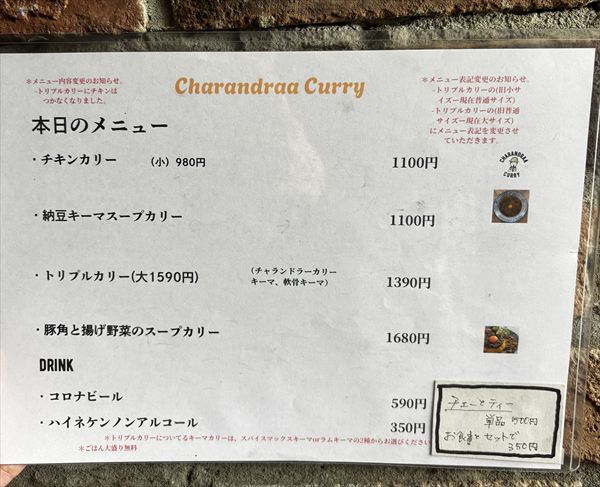 *メニュー内容変更のお知らせ。
-トリプルカリーにチキンは
つかなくなりました。
Charandraa Curry
*メニュー表記変更のお知らせ。
-トリプルカリーの(旧小サ
イズ=現在普通サイズ)
-トリプルカリーの(旧普通
サイズ=現在大サイズ)
にメニュー表記を変更させ
ていただきます。
本日のメニュー
・チキンカリー (小) 980円 1100円
CHARANDRAA
CURRY
・納豆キーマスープカリー 1100円
・トリプルカリー(大1590円) (チャランドラーカリー 1390円
キーマ、軟骨キーマ)
・豚角と揚げ野菜のスープカリー 1680円
DRINK
・コロナビール 590円
・ハイネケンノンアルコール 350円
*トリプルカリーについてるキーマカリーは、スパイスマックスキーマorラムキーマの2種からお選びください
*ごはん大盛り無料
チェーとティー
単品 500円
お食事とセットで
350円